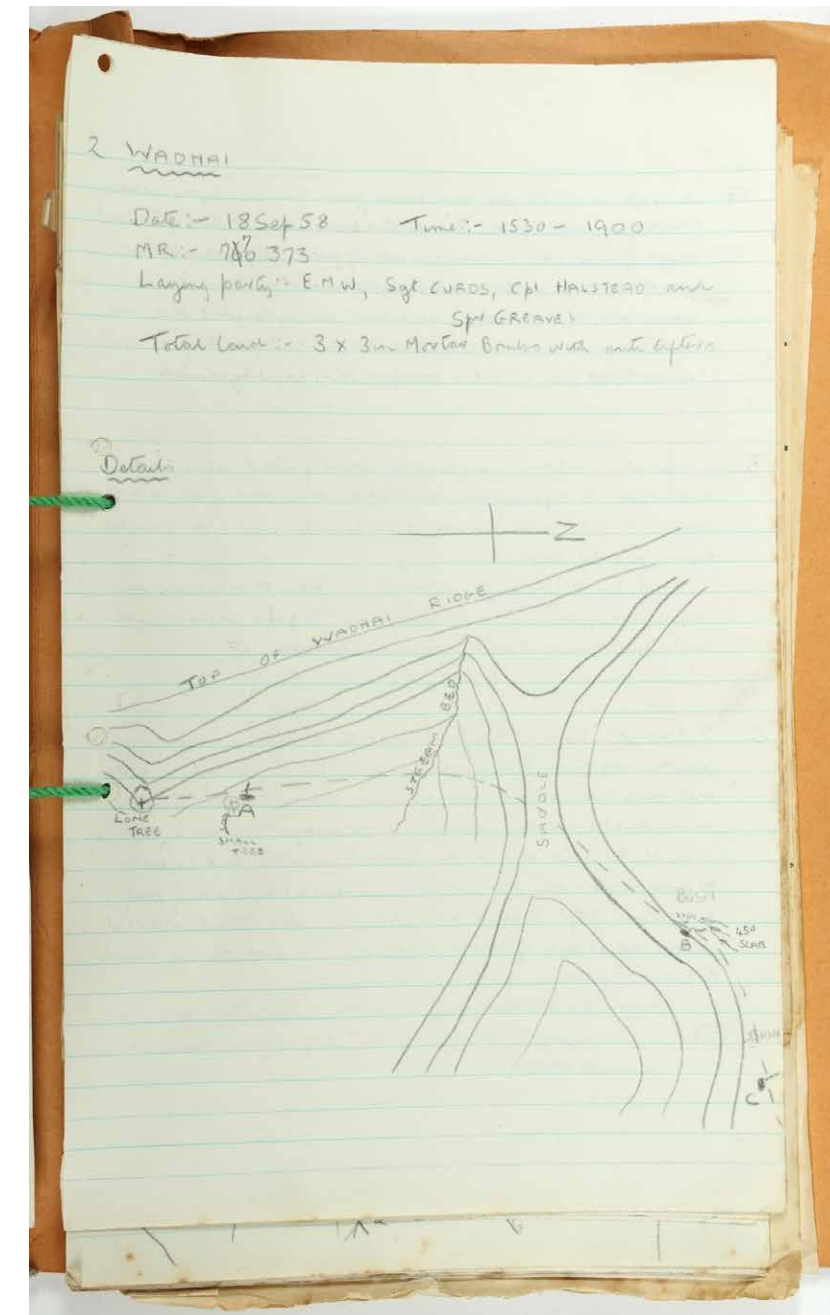 2 WADHAI
Date:- 18 Sep 58 Time:- 1530 - 1900
MR:- 373
Laying party:- E.M.W, Sgt CURDS, Cpl HALSTEAD and
Spr GREAVES
Total Laid :- 3 x 3in Mortar Bombs with anti lifters
Details
N
TOP OF WADHAI RIDGE
STREAM BED
SADDLE
LONE
TREE
A
SMALL
TREE
BUSH
B
45°
SLAB
BUSH
C